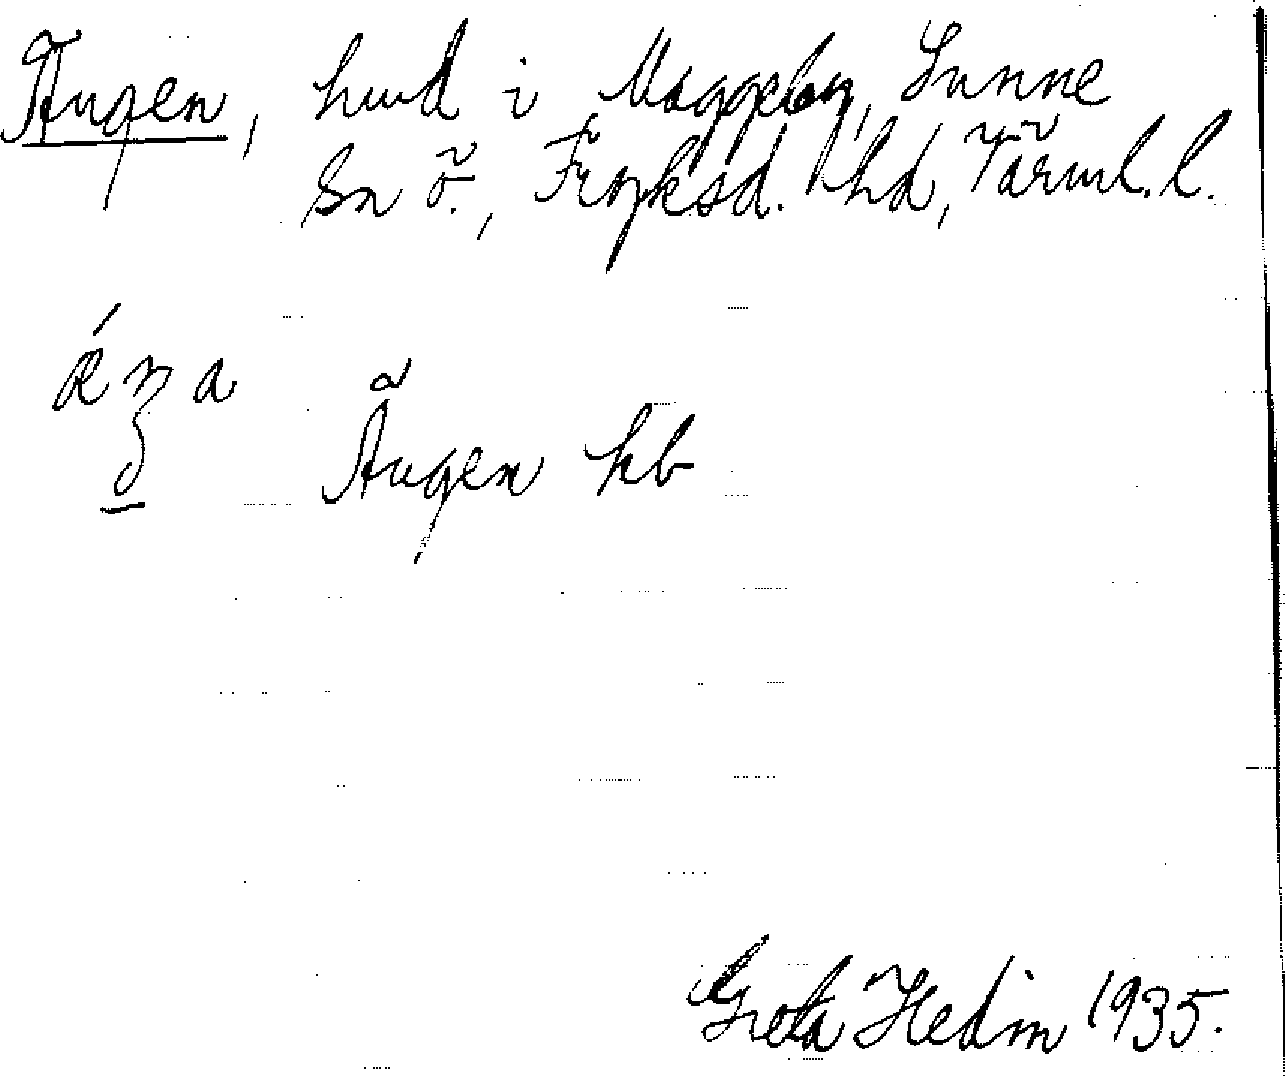 Ängen, hmd i Maggeby, Sunne
Sn ö., Fryksd. hd, Värml. l.
Ängen hb
Greta Hedin 1935.